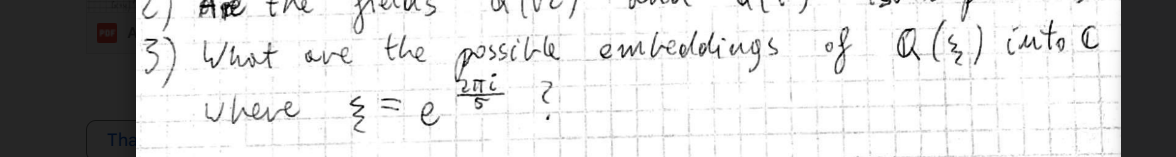 2) Are the fields
3) What are the possible embeddings of Q(ξ) into C
where ξ = e^{2πi/5} ?
PDF
Tha